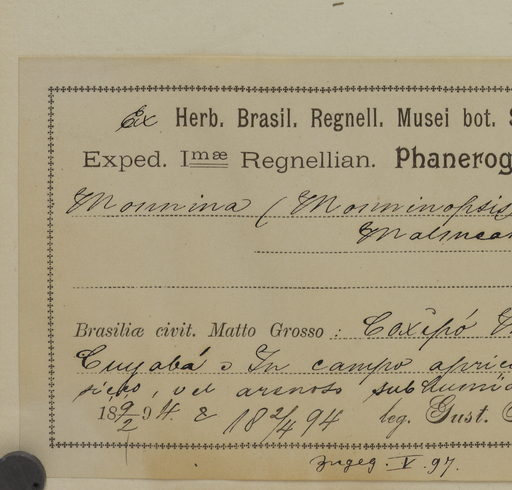 Ex Herb. Brasil. Regnell. Musei bot.
Exped. Imæ Regnellian. Phanerog
Monnina (Monninopsis)
Malmean
Brasiliæ civit. Matto Grosso: Coxipó
Cuyabá: In campo apric
sicco, vel arenoso subhumi
18 9/2 94. & 18 2/4 94 leg. Gust.
Ingeg. V. 97.